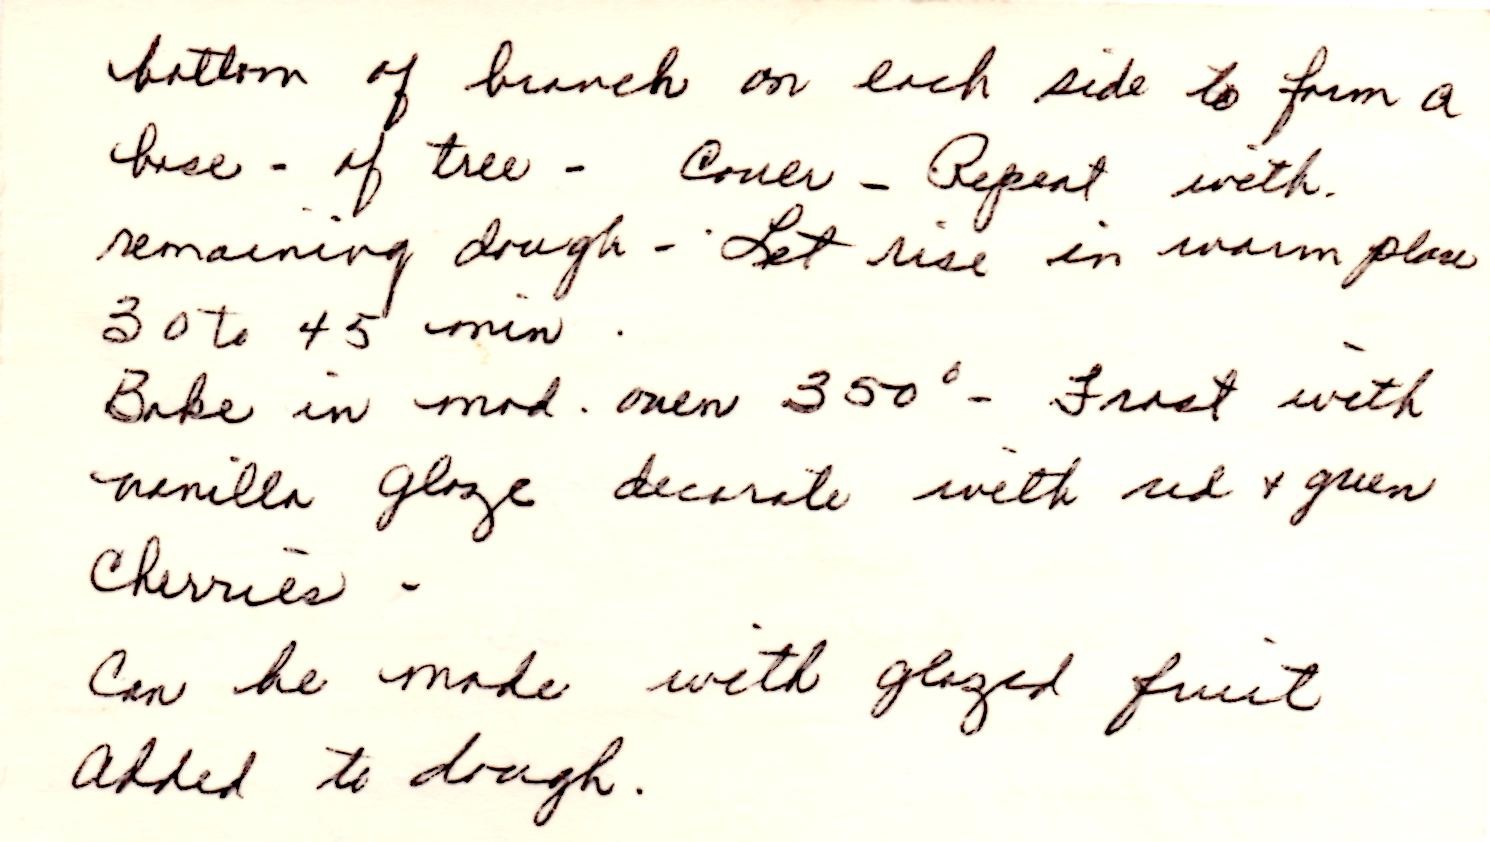 bottom of branch on each side to form a
base - of tree - Cover - Repeat with.
remaining dough - Let rise in warm place
30 to 45 min.
Bake in mod. oven 350° - Frost with
vanilla glaze decorate with red + green
Cherries -
Can be made with glazed fruit
Added to dough.